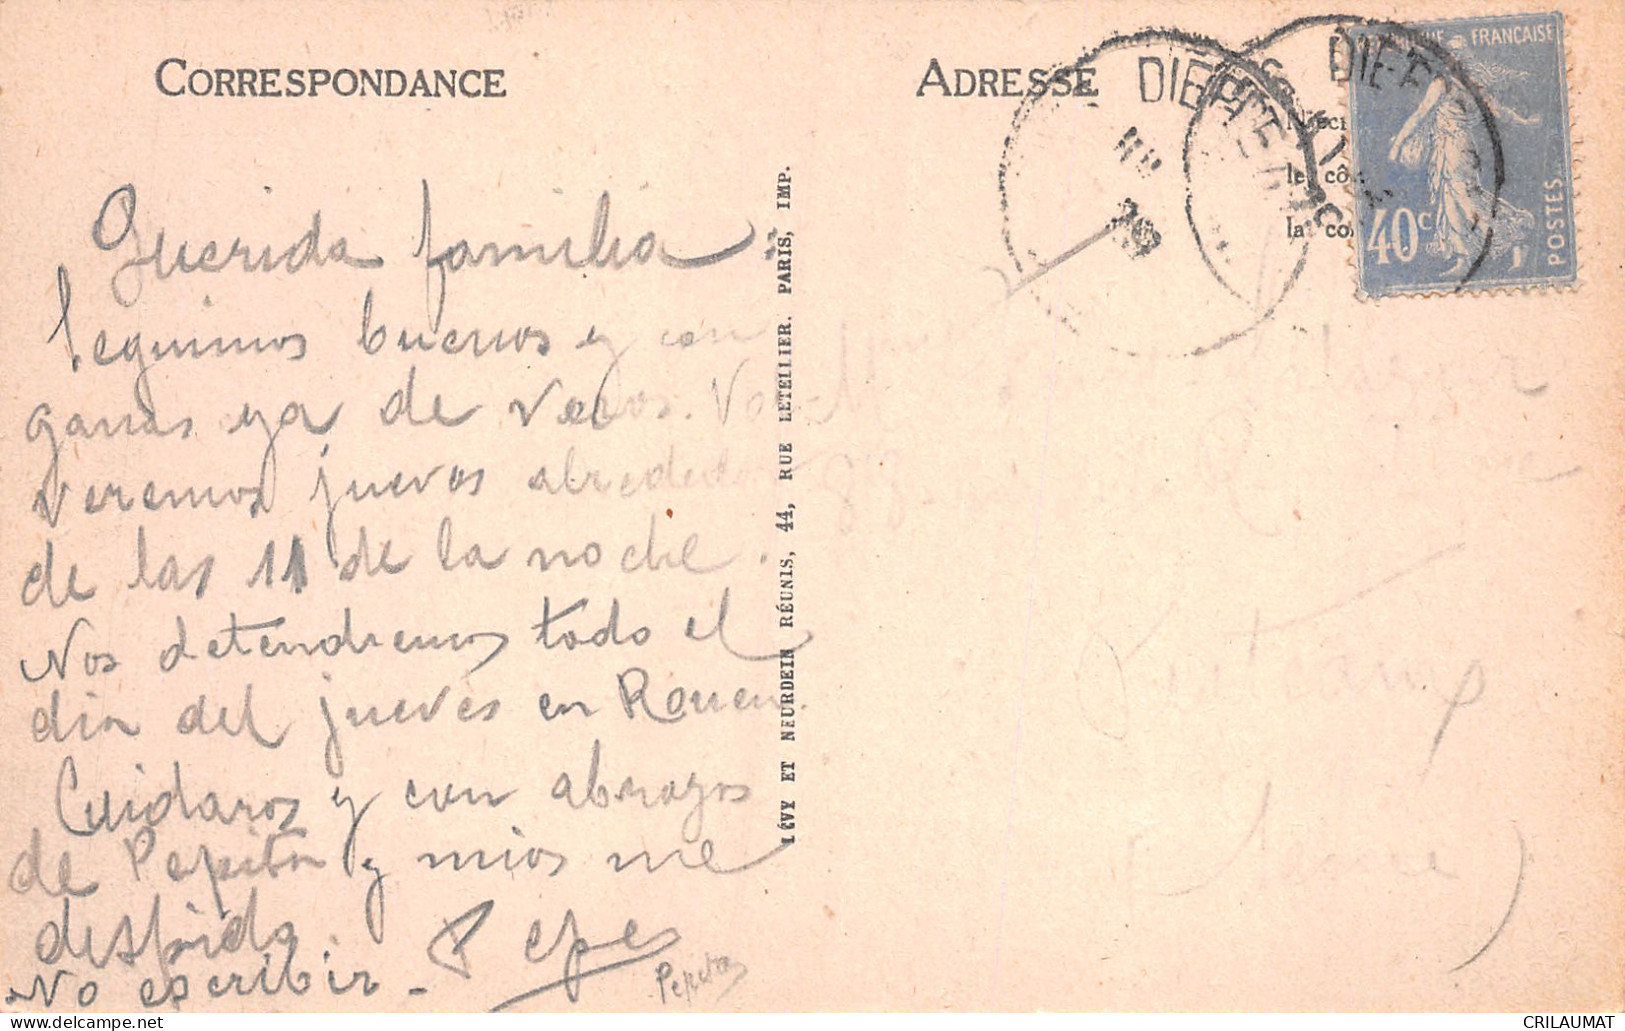 CORRESPONDANCE
ADRESSE
DIEPPE
DIEPPE
RÉPUBLIQUE FRANÇAISE
40c
POSTES
le cô
la co
Querida familia:
Seguimos buenos y con
ganas ya de veros. Vol-
veremos jueves alrededor
de las 11 de la noche.
Nos detendremos todo el
dia del jueves en Rouen.
Cuidaros y con abrazos
de Pepita y mios me
despido
No escribir - Pepe
Pepita
LÉVY ET NEURDEIN RÉUNIS, 44, RUE LETELLIER. PARIS, IMP.
(Seine)
CRILAUMAT